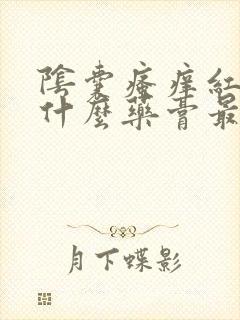 陰囊瘙癢紅
什麼藥膏最
月下蝶影